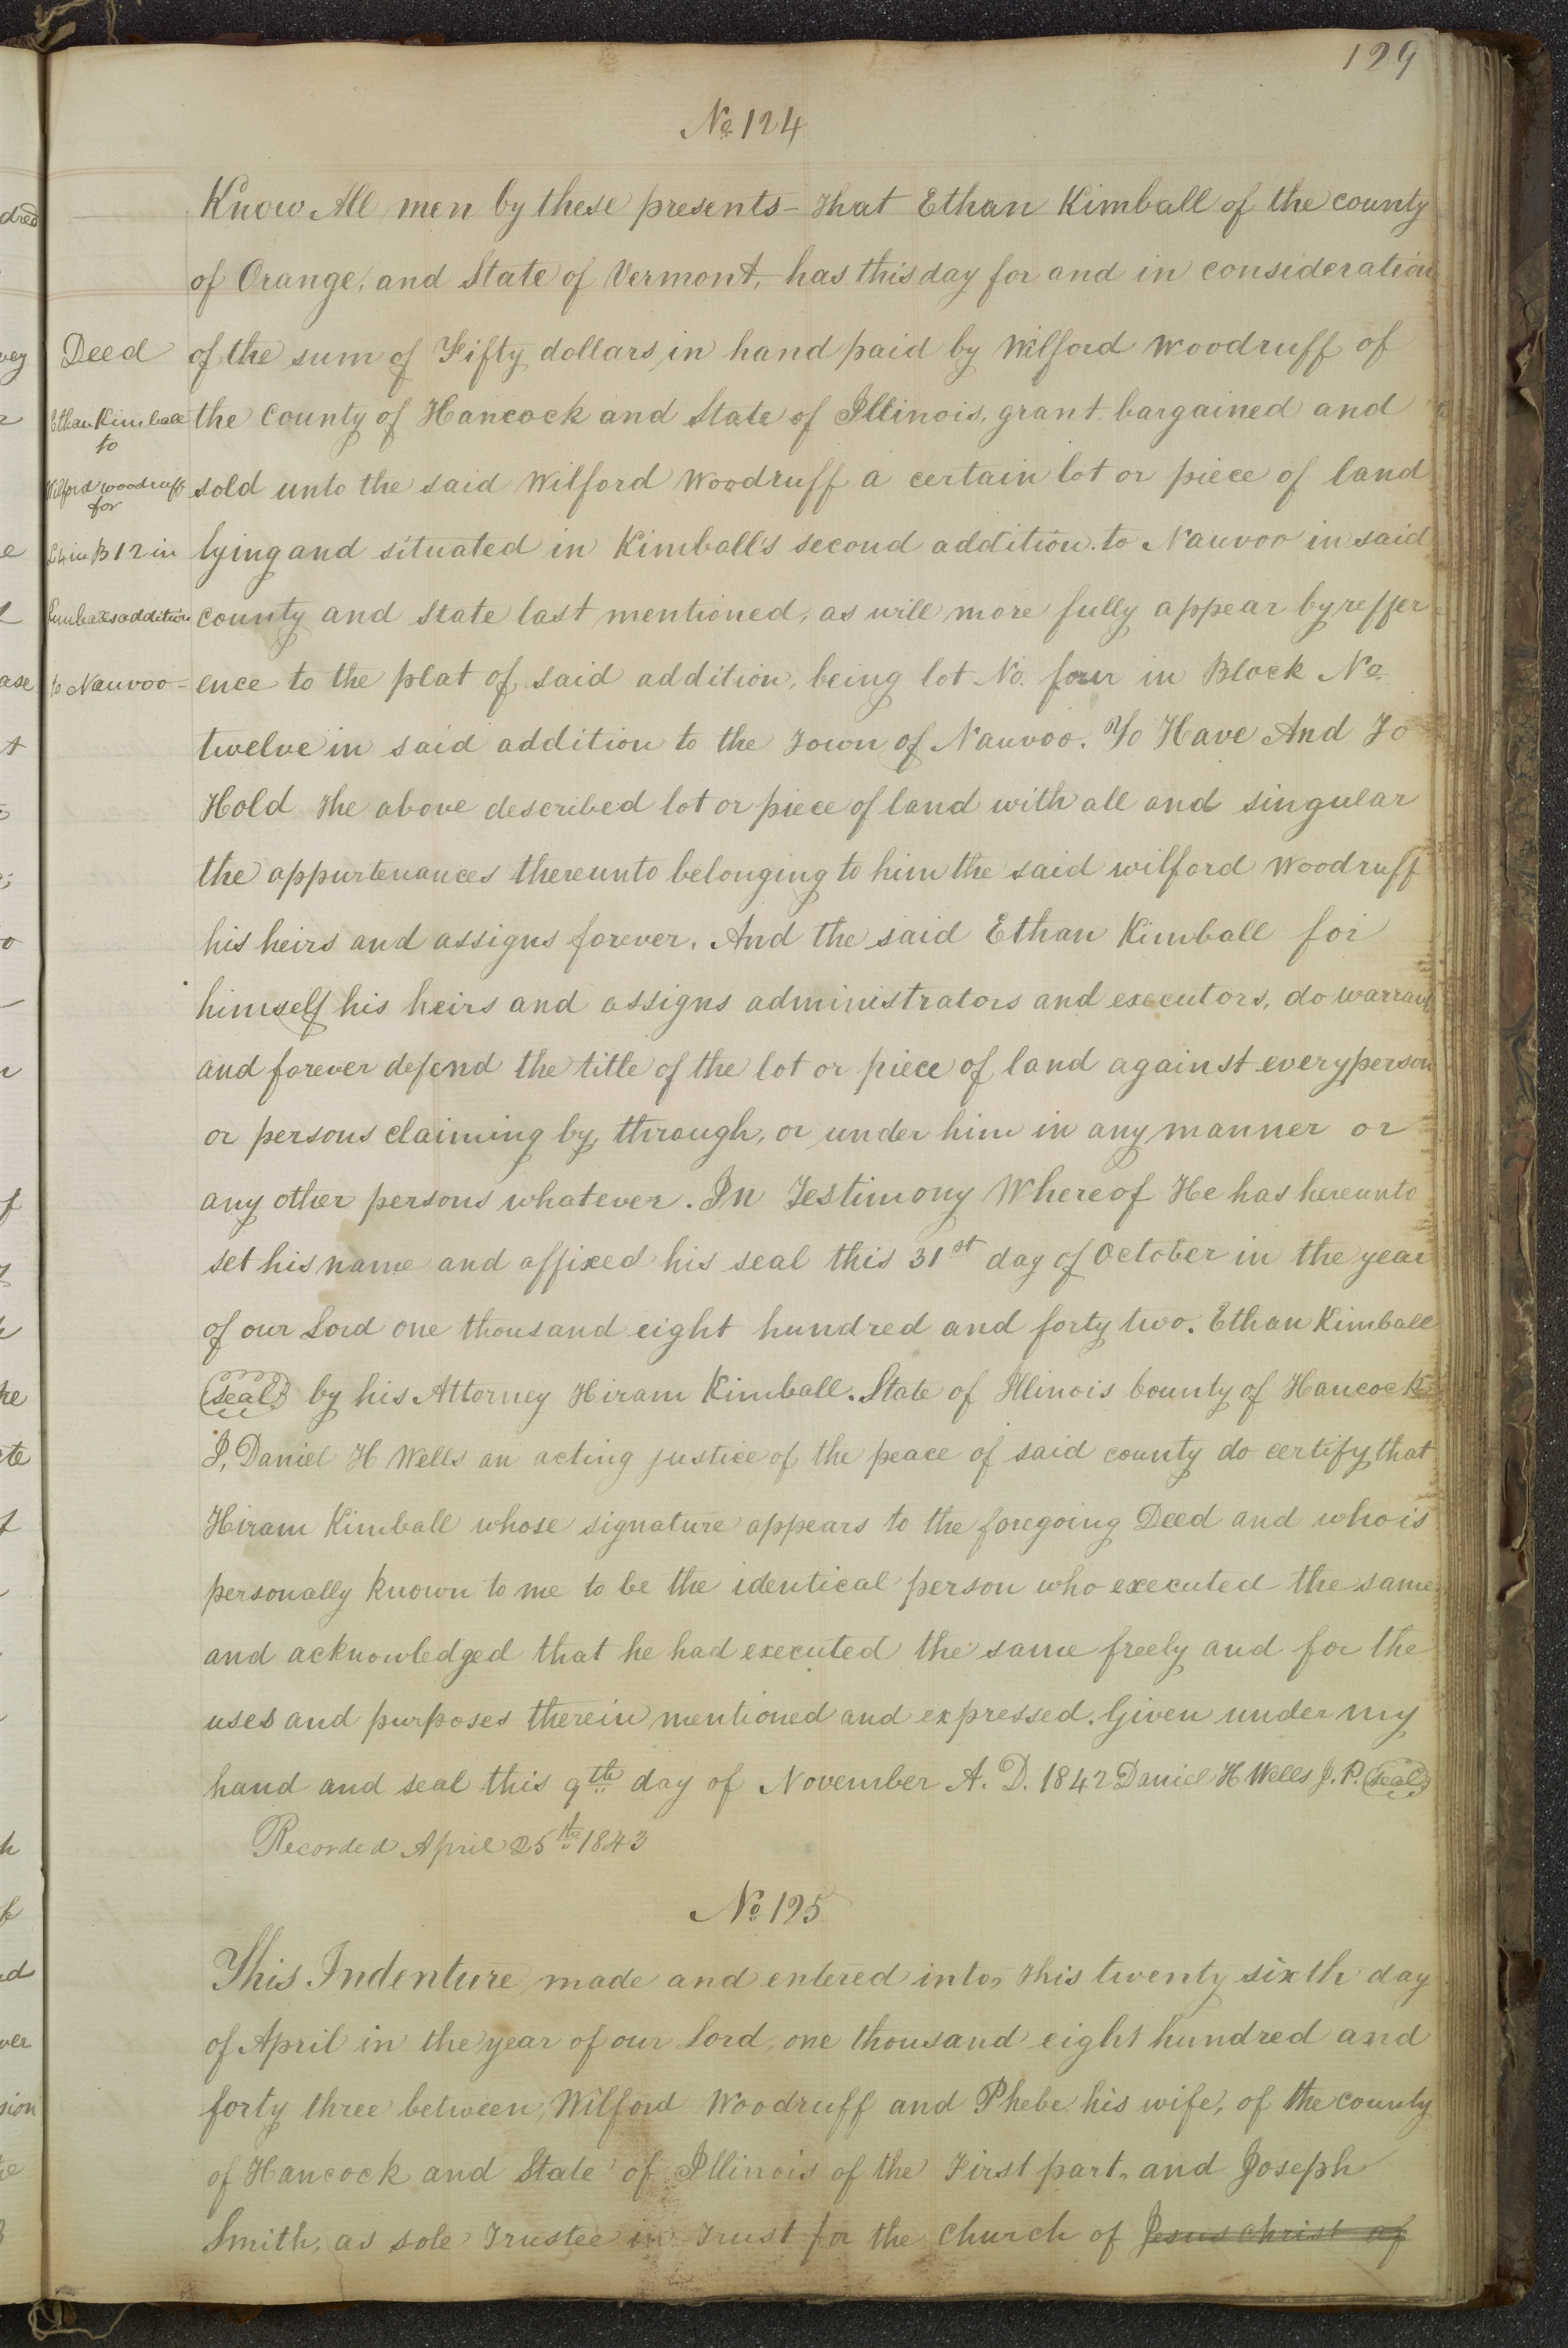 129
No. 124
Know All men by these presents - That Ethan Kimball of the county
of Orange, and State of Vermont, has this day for and in consideration
Deed
of the sum of Fifty dollars in hand paid by Wilford Woodruff of
Ethan Kimball
to
the County of Hancock and State of Illinois, grant, bargained and
Wilford Woodruff
for
sold unto the said Wilford Woodruff a certain lot or piece of land
L4 in B12 in
lying and situated in Kimball's second addition to Nauvoo in said
Kimballs addition
county and State last mentioned, as will more fully appear by reffer
to Nauvoo -
ence to the plat of said addition, being lot No. four in Block No.
twelve in said addition to the Town of Nauvoo. To Have And To
Hold The above described lot or piece of land with all and singular
the appurtenances thereunto belonging to him the said wilford Woodruff
his heirs and assigns forever. And the said Ethan Kimball for
himself his heirs and assigns administrators and executors, do warrant
and forever defend the title of the lot or piece of land against every person
or persons claiming by, through, or under him in any manner or
any other persons whatever. In Testimony Whereof He has hereunto
set his name and affixed his seal this 31st day of October in the year
of our Lord one thousand eight hundred and forty two. Ethan Kimball
(seal) by his Attorney Hiram Kimball. State of Illinois County of Hancock
I, Daniel H Wells an acting justice of the peace of said county do certify that
Hiram Kimball whose signature appears to the foregoing Deed and who is
personally known to me to be the identical person who executed the same
and acknowledged that he had executed the same freely and for the
uses and purposes therein mentioned and expressed. Given under my
hand and seal this 9th day of November A. D. 1842 Daniel H Wells J. P. (seal)
Recorded April 25th 1843
No. 125
This Indenture made and entered into, this twenty sixth day
of April in the year of our Lord, one thousand eight hundred and
forty three between, Wilford Woodruff and Phebe his wife, of the county
of Hancock and State of Illinois of the First part, and Joseph
Smith, as sole Trustee in Trust for the Church of Jesus christ of